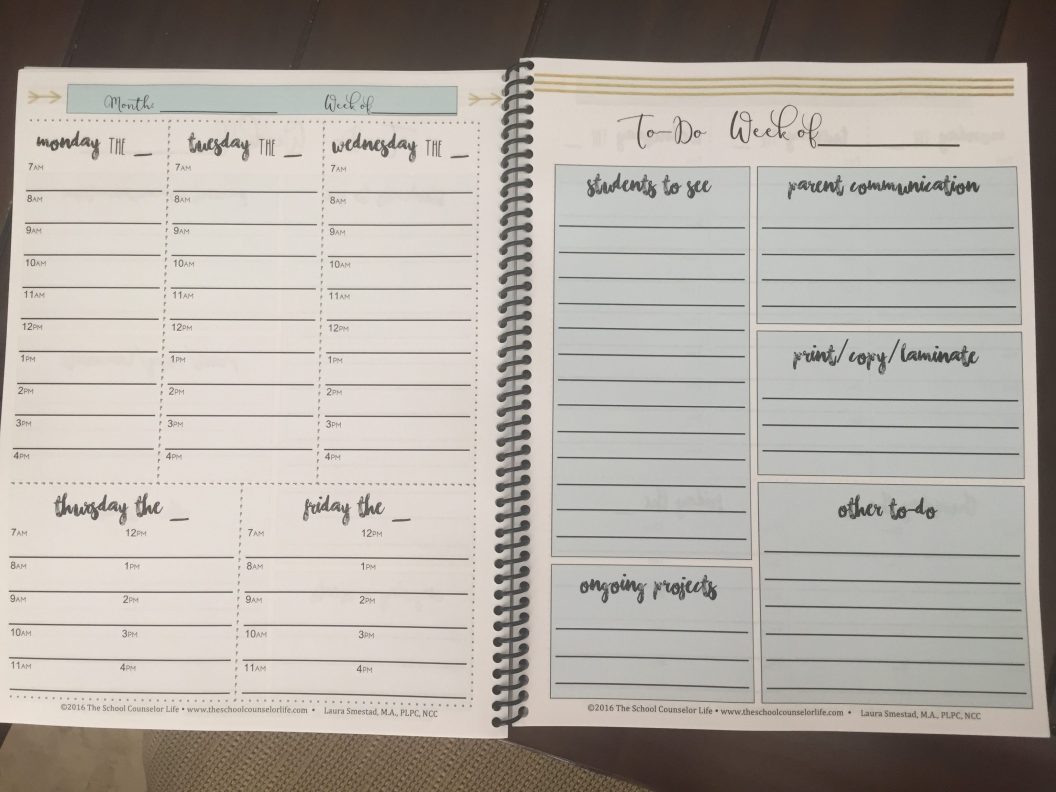 Month: Week of
monday THE __ tuesday THE __ wednesday THE __
7AM 7AM 7AM
8AM 8AM 8AM
9AM 9AM 9AM
10AM 10AM 10AM
11AM 11AM 11AM
12PM 12PM 12PM
1PM 1PM 1PM
2PM 2PM 2PM
3PM 3PM 3PM
4PM 4PM 4PM
thursday the __ friday the __
7AM 12PM 7AM 12PM
8AM 1PM 8AM 1PM
9AM 2PM 9AM 2PM
10AM 3PM 10AM 3PM
11AM 4PM 11AM 4PM
©2016 The School Counselor Life • www.theschoolcounselorlife.com • Laura Smestad, M.A., PLPC, NCC
To-Do Week of
students to see
parent communication
print/copy/laminate
other to-do
ongoing projects
©2016 The School Counselor Life • www.theschoolcounselorlife.com • Laura Smestad, M.A., PLPC, NCC